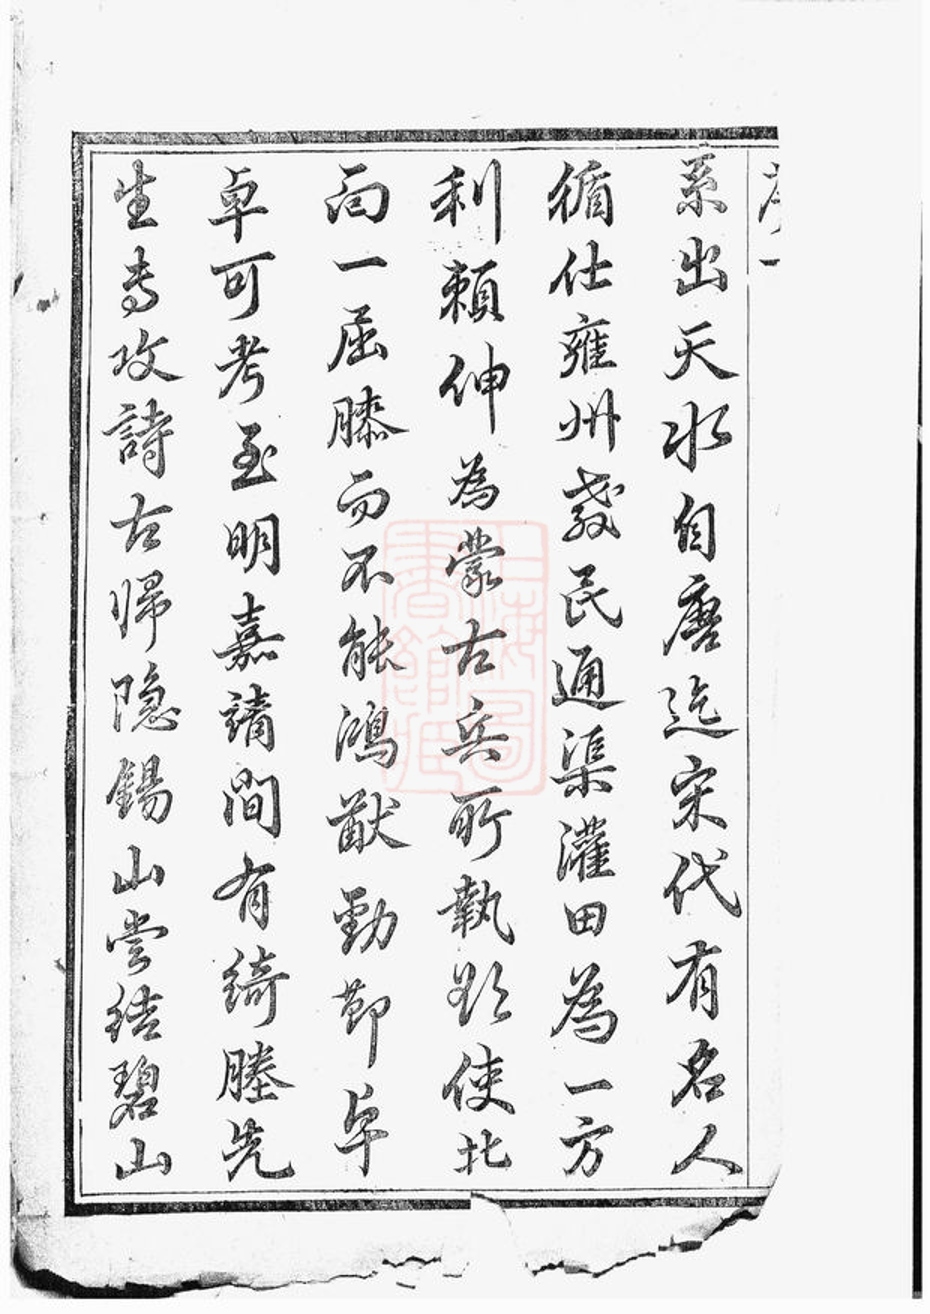 序一
系出天水自唐迄宋代有名人
循仕雍州教民通渠灌田為一方
利賴伸為蒙古兵所執欲使北
面一屈膝而不能鴻猷勁節卓
卓可考至明嘉靖間有綺塍先
生專攻詩古帰隐錫山嘗結碧山
上海圖書館藏